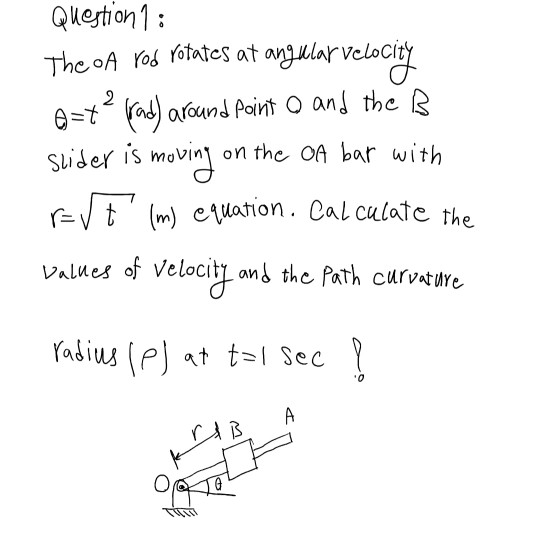 Question1:
The OA rod rotates at angular velocity
θ=t² (rad) around point O and the B
slider is moving on the OA bar with
r=√t (m) equation. Calculate the
values of velocity and the path curvature
radius (ρ) at t=1 sec ?
r B A
O θ